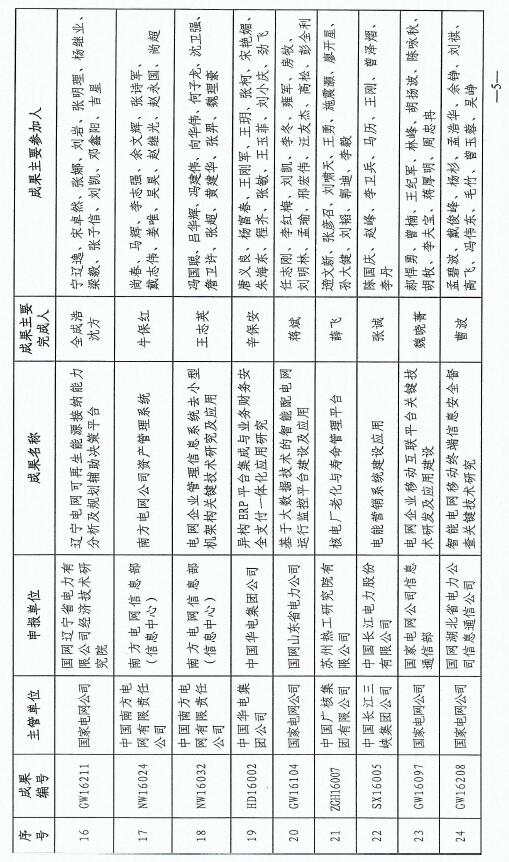 序号 成果编号 主管单位 申报单位 成果名称 成果主要完成人 成果主要参加人
16 GW16211 国家电网公司 国网辽宁省电力有限公司经济技术研究院 辽宁电网可再生能源接纳能力分析及规划辅助决策平台 全成浩 沈方 宁辽逸、宋卓然、张娜、刘岩、张明理、杨继业、梁毅、张子信、刘凯、邓鑫阳、吉星
17 NW16024 中国南方电网有限责任公司 南方电网信息部（信息中心） 南方电网公司资产管理系统 牛保红 尚春、马辉、李志强、余文辉、张诗军、戴志伟、姜唯、吴昊、赵继光、赵永国、尚超
18 NW16032 中国南方电网有限责任公司 南方电网信息部（信息中心） 电网企业管理信息系统去小型机架构关键技术研究及应用 王志英 冯国聪、吕华辉、冯建伟、向华伟、何子龙、沈卫强、詹卫许、张超、黄建华、张羿、魏理豪
19 HD16002 中国华电集团公司 中国华电集团公司 异构ERP平台集成与业务财务安全支付一体化应用研究 辛保安 唐义良、杨富春、王刚军、王玥、张柯、宋艳媚、朱海东、程齐、张敏、王玉菲、刘小庆、劲飞
20 GW16104 国家电网公司 国网山东省电力公司 基于大数据技术的智能配电网运行监控平台建设及应用 蒋斌 任志刚、李红梅、刘凯、李冬、雍军、房牧、刘明林、孟瑜、邢宏伟、汪友杰、高松、彭全利
21 ZGH16007 中国广核集团有限公司 苏州热工研究院有限公司 核电厂老化与寿命管理平台 薛飞 遆文新、张彦召、刘啸天、王勇、施震灏、廖开星、孙大健、刘韬、郭迪、李毅
22 SX16005 中国长江三峡集团公司 中国长江电力股份有限公司 电能营销系统建设应用 张诚 陈国庆、赵峰、李卫兵、马历、王刚、曾泽熠、李丹
23 GW16097 国家电网公司 国家电网公司信息通信部 电网企业移动互联平台关键技术研发及应用建设 魏晓菁 郝悍勇、曾楠、王纪军、林峰、胡扬波、陈咏秋、胡牧、李夫宝、蒋厚明、周忠冉
24 GW16208 国家电网公司 国网湖北省电力公司信息通信公司 智能电网移动终端信息安全督查关键技术研究 曹波 孟碧波、戴俊峰、杨杉、孟浩华、余铮、刘祺、高飞、冯伟东、毛竹、曾玉蓉、吴峥
—5—